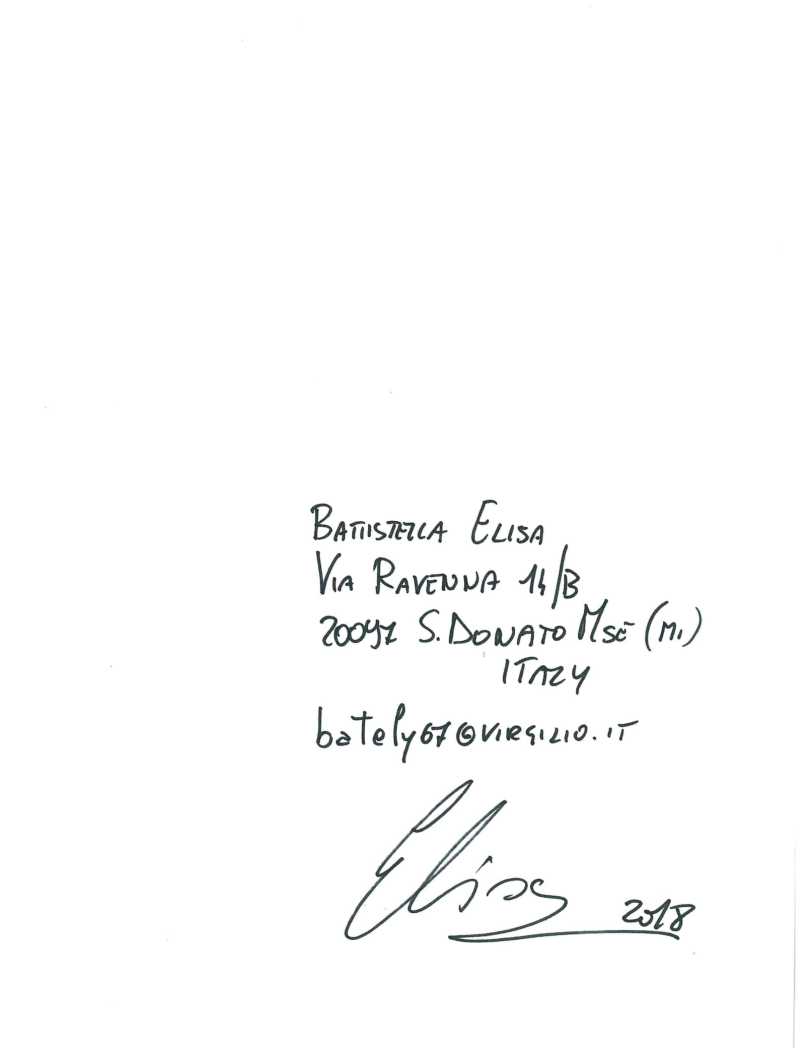 BATTISTELLA ELISA
VIA RAVENNA 14/B
20097 S. DONATO MSE (MI)
ITALY
bately67@VIRGILIO.IT
Elisa 2018